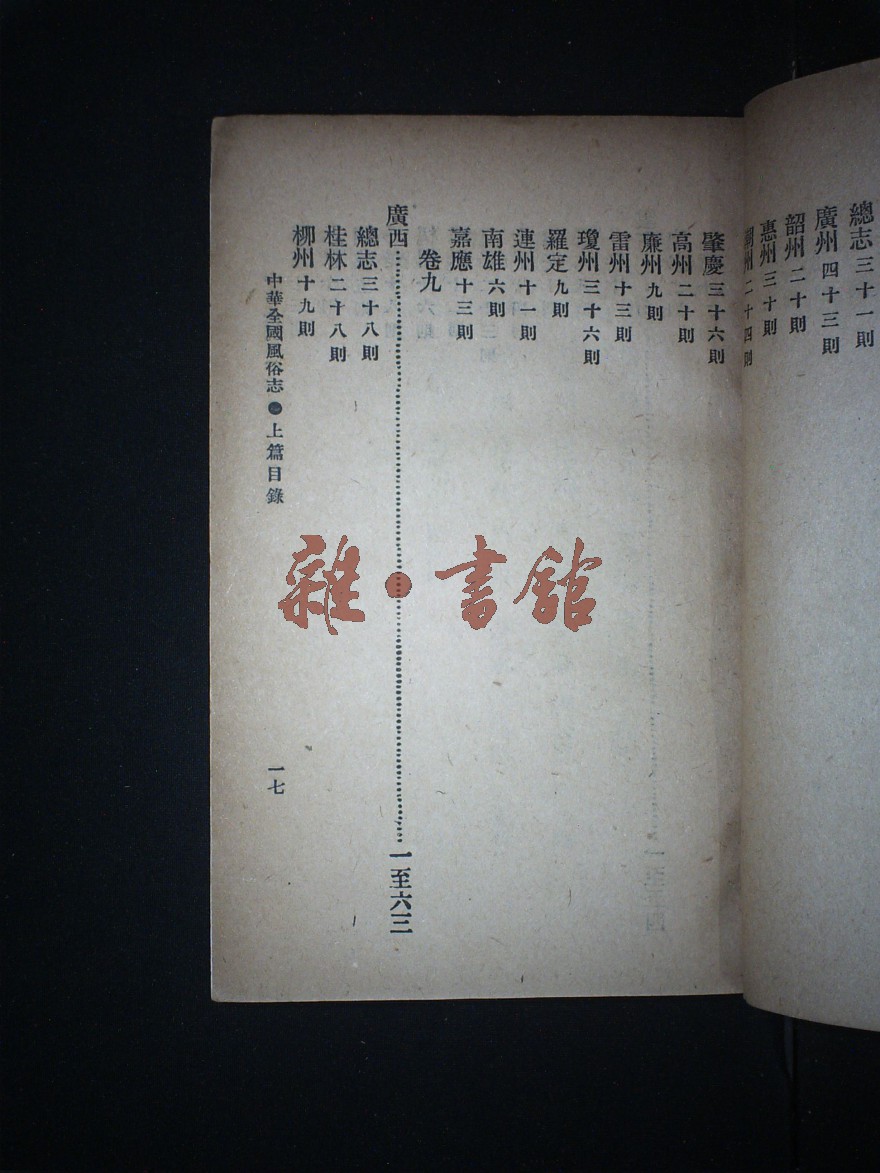 總志三十一則
廣州四十三則
韶州二十則
惠州三十則
潮州二十四則
肇慶三十六則
高州二十則
廉州九則
雷州十三則
瓊州三十六則
羅定九則
連州十一則
南雄六則
嘉應十三則
卷九
廣西……………………一至六三
總志三十八則
桂林二十八則
柳州十九則
中華全國風俗志 ● 上篇目錄
一七
雜·書館